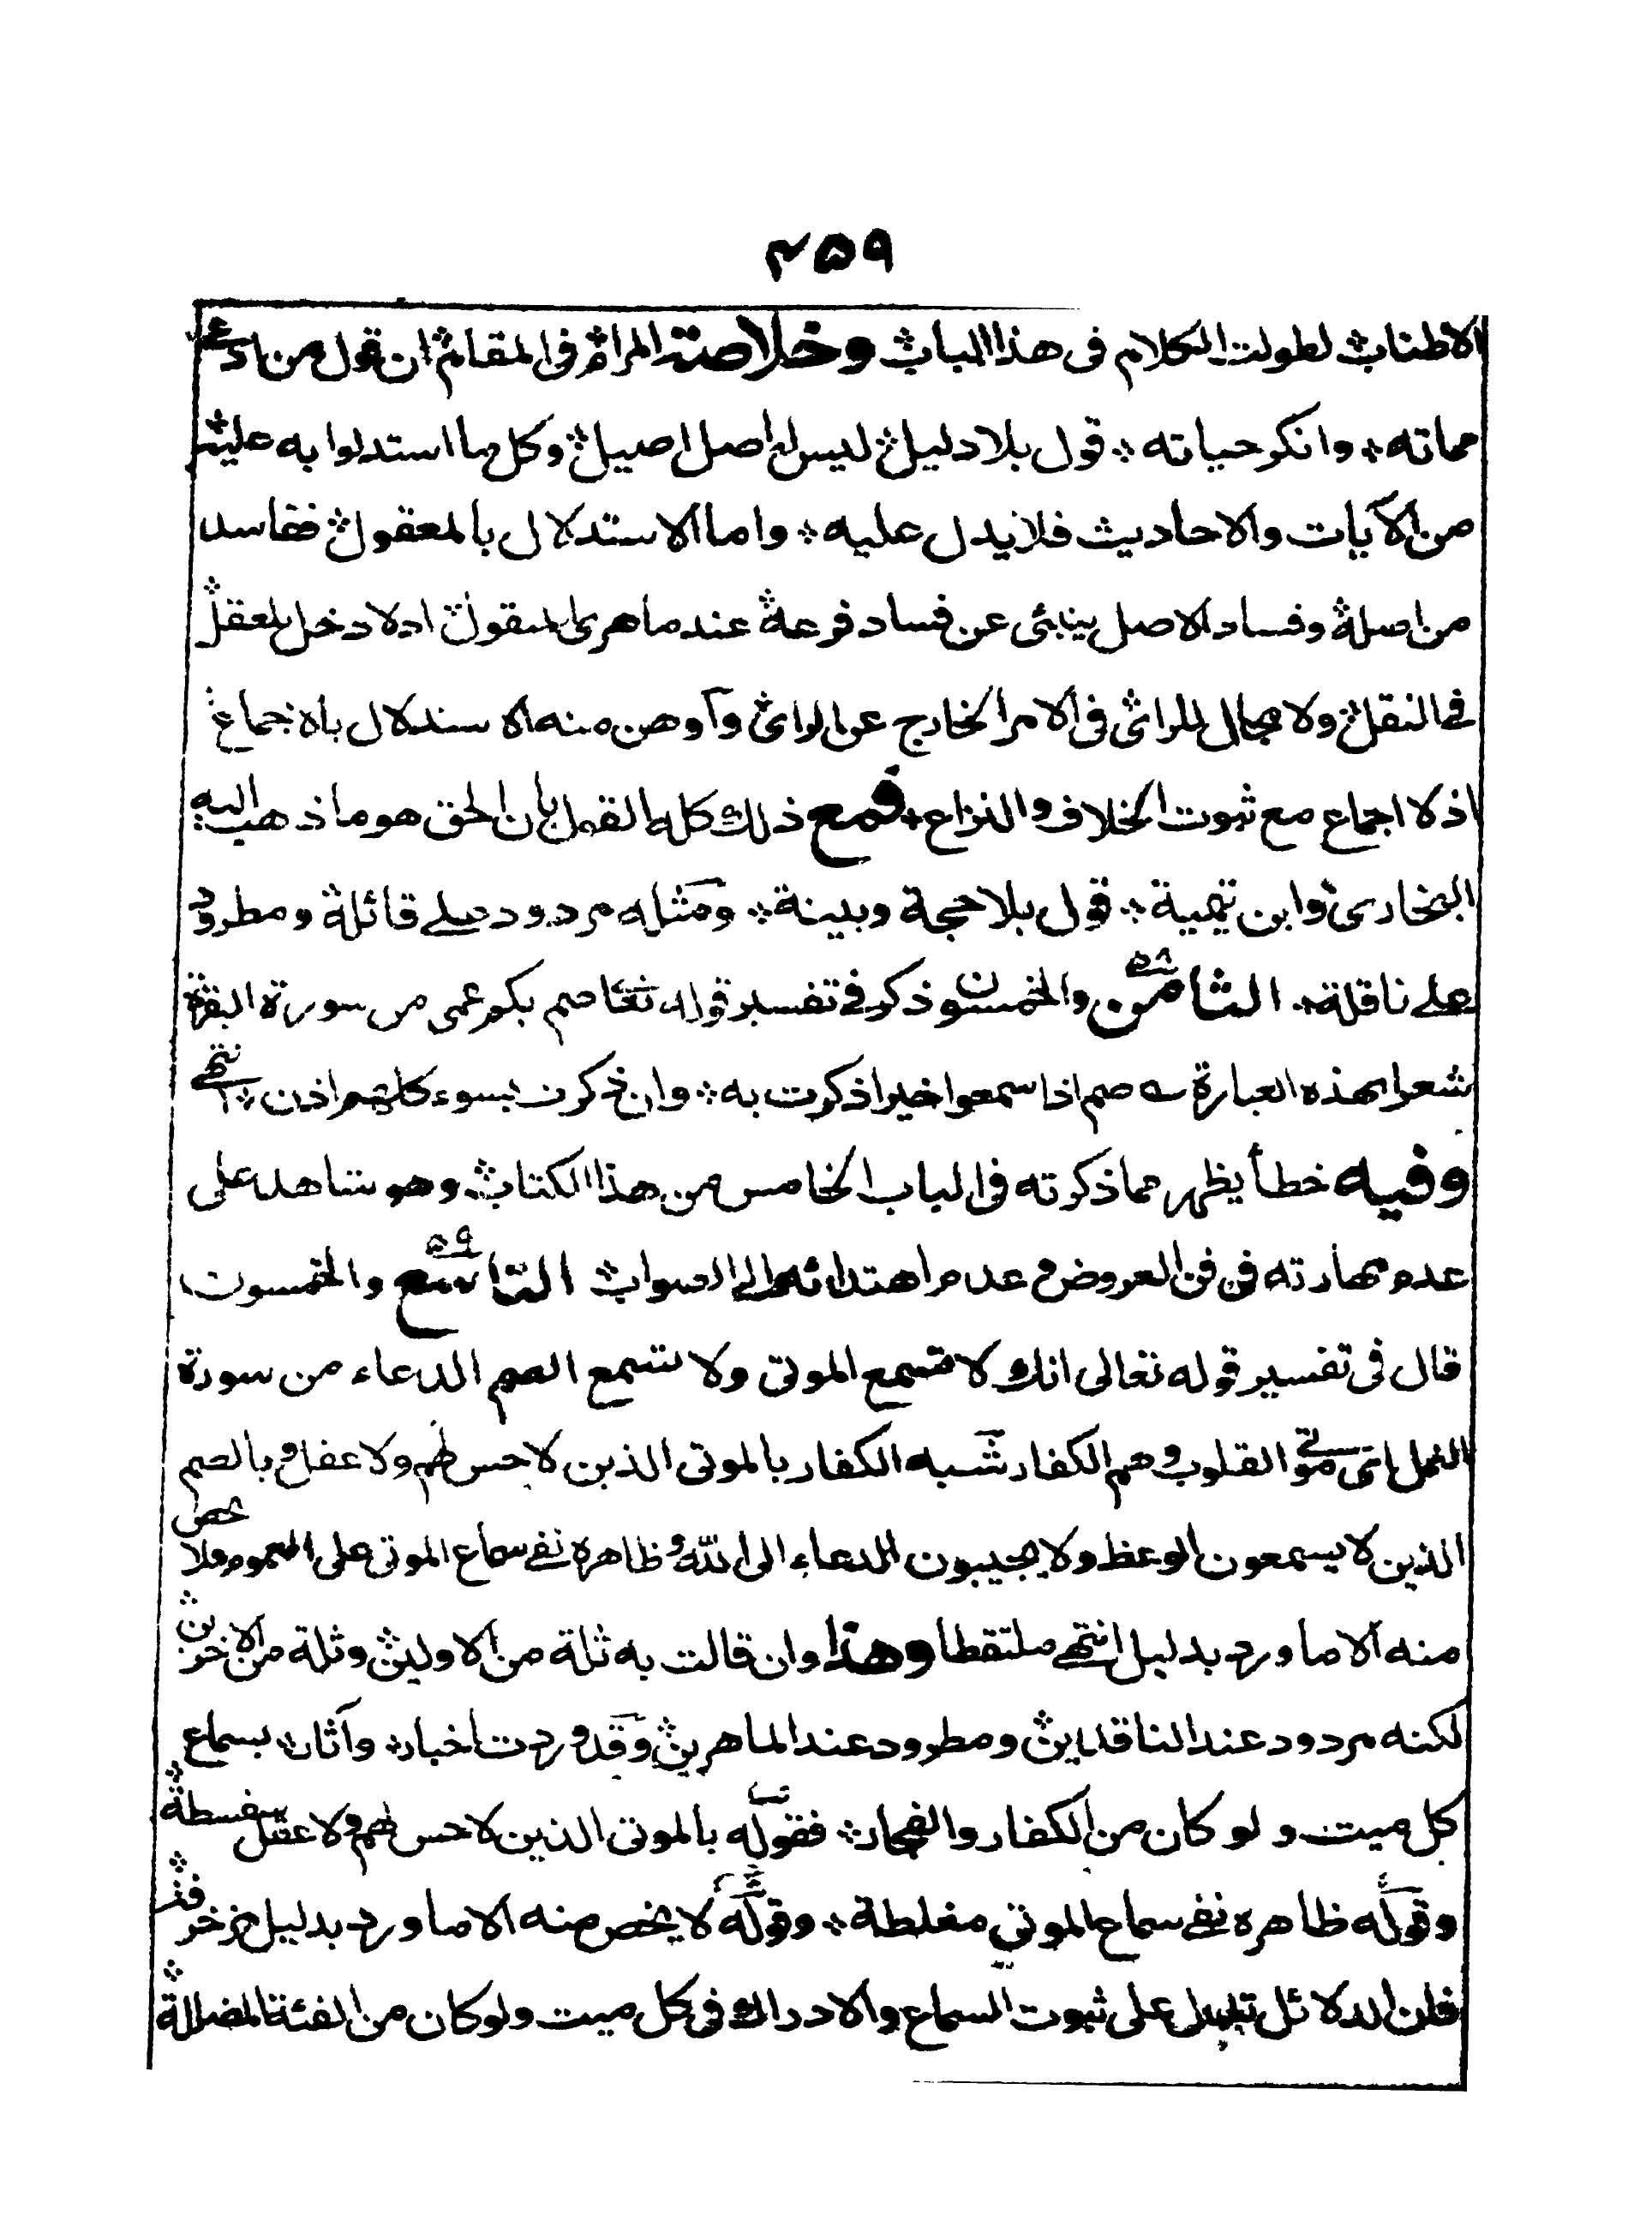 ۴۵۹
الاطناب؞ لطولت الكلام فى هذا الباب؞ وخلاصة المرام؞ فى المقام؞ ان قول من ادعى
مماته؞ وانكر حياته؞ قول بلا دليل؞ ليس له اصل اصيل؞ وكل ما استدلوا به عليه؞
من الآيات والاحاديث فلا يدل عليه؞ واما الاستدلال بالمعقول؞ ففاسد
من اصله؞ وفساد الاصل ينبئى عن فساد فرعه؞ عند ماهرى المنقول؞ اذ لا دخل للعقل؞
فى النقل؞ ولا مجال للرائ؞ فى الامر الخارج عن الرائ؞ وآوهن منه الاستدلال بالاجماع؞
اذ لا اجماع مع ثبوت الخلاف والنزاع؞ فمع ذلك كله القول بان الحق هو ما ذهب اليه
البخارى؞ وابن تيمية؞ قول بلا حجة وبينة؞ ومثله مردود على قائله ومطرود
على ناقله؞ الثامن ۵۸ والخمسون ذكر فى تفسير قوله تعا صم بكم عمى من سورة البقرة
شعرا بهذه العبارة ؎ صم اذا سمعوا خيرا ذكرت به؞ وان ذكرت بسوء كلهم اذن؞ انتهى
وفيه خطأ يظهر مما ذكرته فى الباب الخامس من هذا الكتاب؞ وهو شاهد على
عدم مهارته فى فن العروض و عدم اهتدائه الى الصواب؞ التاسع ۵۹ والخمسون
قال فى تفسير قوله تعالى انك لا تسمع الموتى ولا تسمع الصم الدعاء من سورة
النمل اى موتى القلوب وهم الكفار شبه الكفار بالموتى الذين لا حس لهم ولا عقل وبالصم
الذين لا يسمعون الوعظ ولا يجيبون الدعاء الى الله و ظاهره نفى سماع الموتى على العموم ولا يخص
منه الا ما ورد بدليل انتهى ملتقطا وهذا وان قالت به ثلة من الاولين؞ وثلة من الاخرين؞
لكنه مردود عند الناقدين؞ ومطرود عند الماهرين؞ وقد وردت اخبار؞ وآثار؞ بسماع
كل ميت ولو كان من الكفار والفجار؞ فقوله بالموتى الذين لا حس لهم ولا عقل سفسطة؞
وقوله ظاهره نفى سماع الموتى مغلطة؞ وقوله لا يخص منه الا ما ورد بدليل مزخرفة؞
فان الدلائل تدل على ثبوت السماع والادراك فى كل ميت ولو كان من الفئة الضالة؞